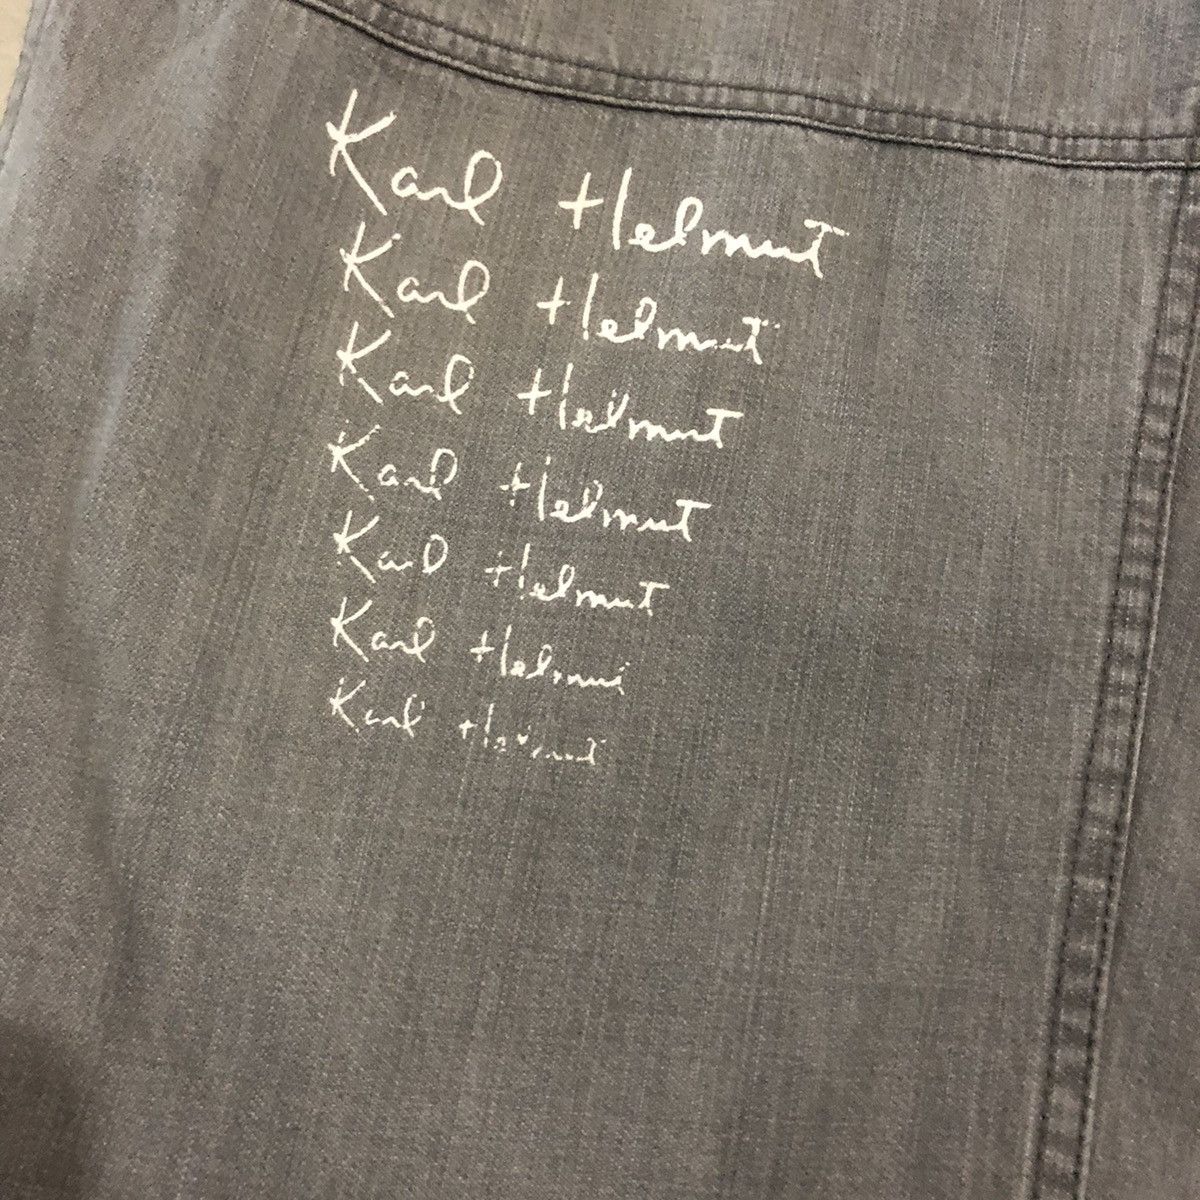 Karl Helmut
Karl Helmut
Karl Helmut
Karl Helmut
Karl Helmut
Karl Helmut
Karl Helmut